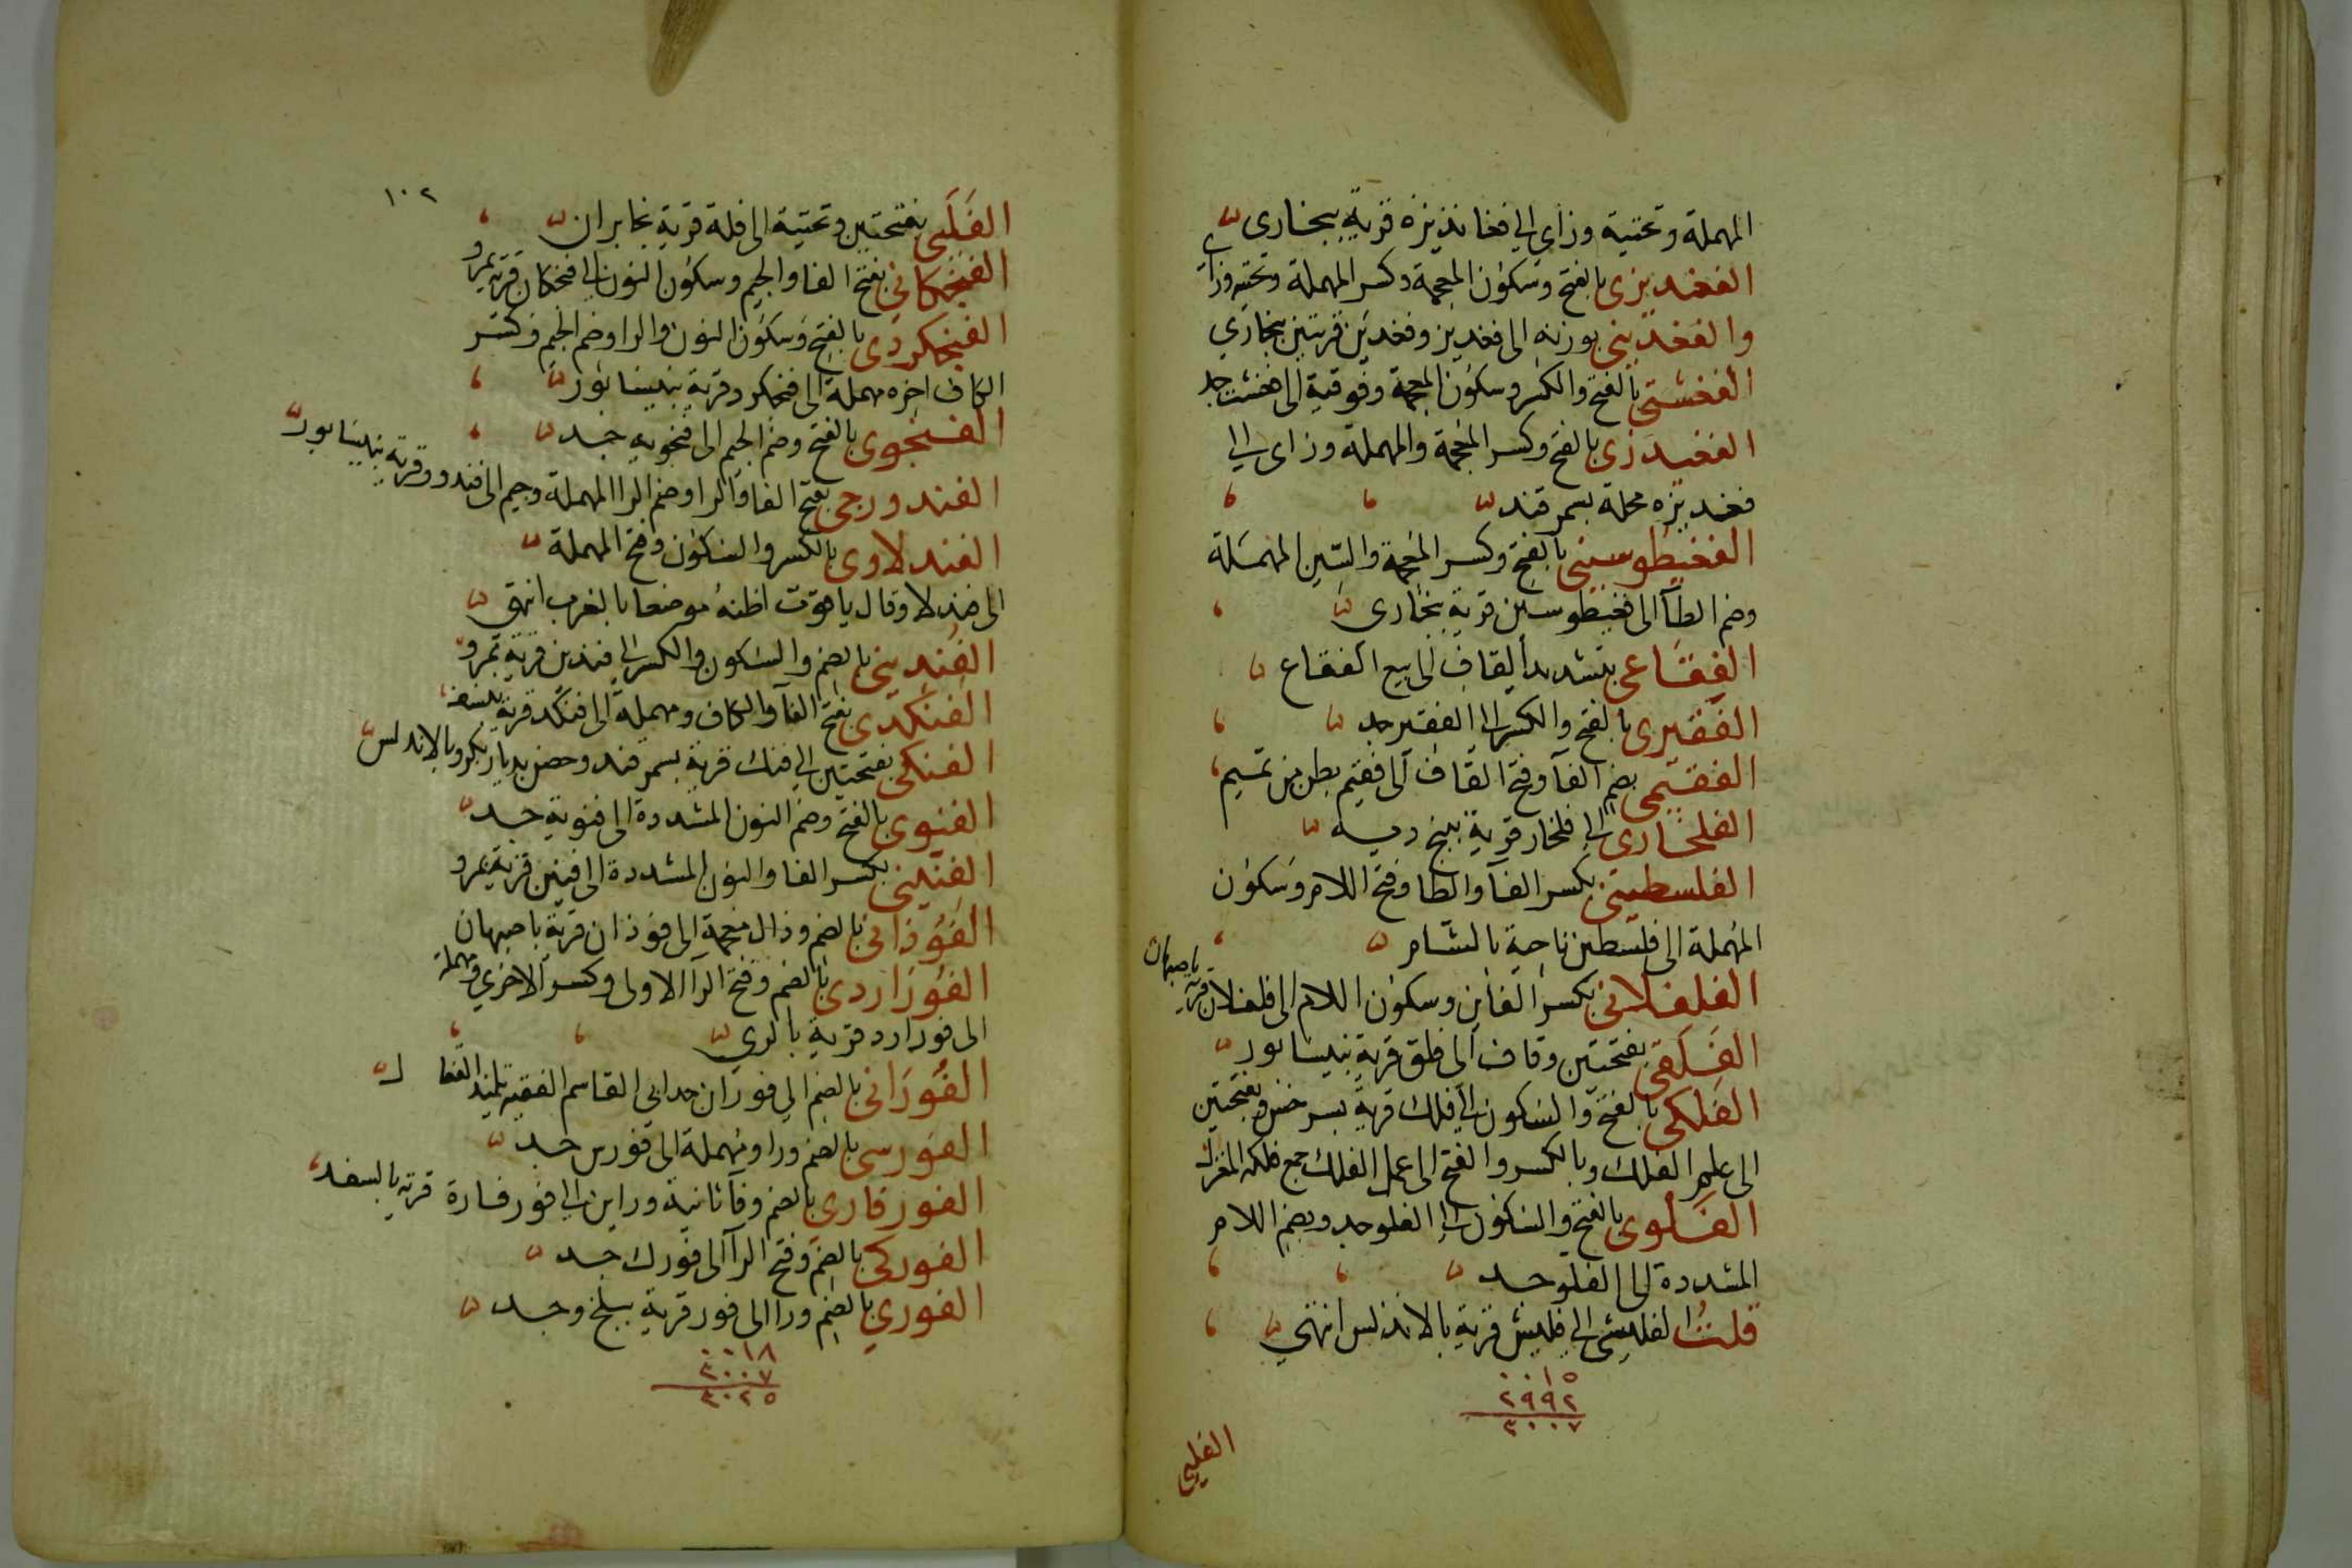 المهملة وتحتية وزاى الى فغانديزه قرية ببخارى
الفغديزى بالفتح وسكون المعجمة وكسر المهملة وتحتيه وزاى
والفغدينى بوزنه الى فغديز وفغدين قريتين ببخارى
الفغشتى بالفتح والكسر وسكون المعجمة وفوقية الى فغشت جد
الفغيدزى بالفتح وكسر المعجمة والمهملة وزاى الى
فغديزه محلة بسمرقند
الفغيطوسينى بالفتح وكسر المعجمة والسين المهملة
وضم الطآ الى فغيطوسين قرية ببخارى
الفقاعى بتشديد القاف الى بيع الفقاع
الفقيرى بالفتح والكسر الى الفقير جد
الفقيمى بضم الفآ وفتح القاف الى فقيم بطن من تميم
الفلخارى الى فلخار قرية بپنج ديه
الفلسطينى بكسر الفآ والطا وفتح اللام وسكون
المهملة الى فلسطين ناحية بالشام
الفلفلانى بكسر الفاين وسكون اللام الى فلفلان قرية باصبهان
الفلقى بفتحتين وقاف الى فلق قرية بنيسابور
الفلكى بالفتح والسكون الى فلك قرية بسرخس وبفتحتين
الى علم الفلك وبالكسر والفتح الى عمل الفلك جمع فلكه المغزل
الفلوى بالفتح والسكون الى الفلو جد وبضم اللام
المشددة الى الفلو جد
قلت الفليشى الى فليش قرية بالاندلس انتهى
٠٠١٥
٢٩٩٢
٣٠٠٧
الفليى
١٠٢
الفليى بفتحتين وتحتية الى فلة قرية بخابران
الفنجكانى بفتح الفا والجيم وسكون النون الى فنجكان قرية بمرو
الفنجكردى بالفتح وسكون النون والرا وضم الجيم وكسر
الكاف اخره مهملة الى فنجكرد قرية بنيسابور
الفنجوى بالفتح وضم الجيم الى فنجويه جد
الفندورجى بفتح الفا والرا وضم الرا المهملة وجيم الى فندورقرية بنيسابور
الفندلاوى بالكسر والسكون وفتح المهملة
الى فندلا وقال ياقوت اظنه موضعا بالغرب انتهى
الفندينى بالضم والسكون والكسر الى فندين قرية بمرو
الفنكدى بفتح الفآ والكاف ومهملة الى فنكد قرية بنسف
الفنكى بفتحتين الى فنك قرية بسمرقند وحصن بديار بكر وبالاندلس
الفنوى بالفتح وضم النون المشددة الى فنوية جد
الفنينى بكسر الفا والنون المشددة الى فنين قرية بمرو
الفوذانى بالضم وذال معجمة الى فوذان قرية باصبهان
الفوراردى بالضم وفتح الرآ الاولى وكسر الاخرى ومهملة
الى فورارد قرية بالرى
الفورانى بالضم الى فوران جد ابى القاسم الفقيه تلميذ القفال
الفورسى بالضم ورا ومهملة الى فورس جد
الفورفارى بالضم وفآ ثانية وراين الى فورفارة قرية بالسغد
الفوركى بالضم وفتح الرآ الى فورك جد
الفورى بالضم ورا الى فور قرية ببلخ وجد
٠٠١٨
٣٠٠٧
٣٠٢٥